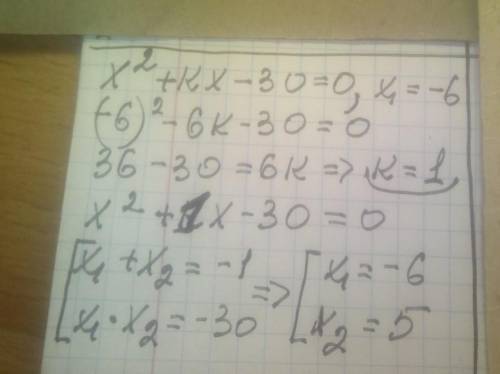 x² + кx - 30 = 0, x₁ = -6
(-6)² - 6к - 30 = 0
36 - 30 = 6к => к = 1
x² + 1x - 30 = 0
[x₁ + x₂ = -1
x₁ · x₂ = -30 => [x₁ = -6
x₂ = 5